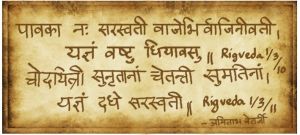 पावका नः सरस्वती वाजेभिर्वाजिनीवती,
यज्ञं वष्टु धियावसु ॥ Rigveda 1/3/10
चोदयित्री सुनृतानां चेतन्ती सुमतिनां,
यज्ञं दधे सरस्वती ॥ Rigveda 1/3/11